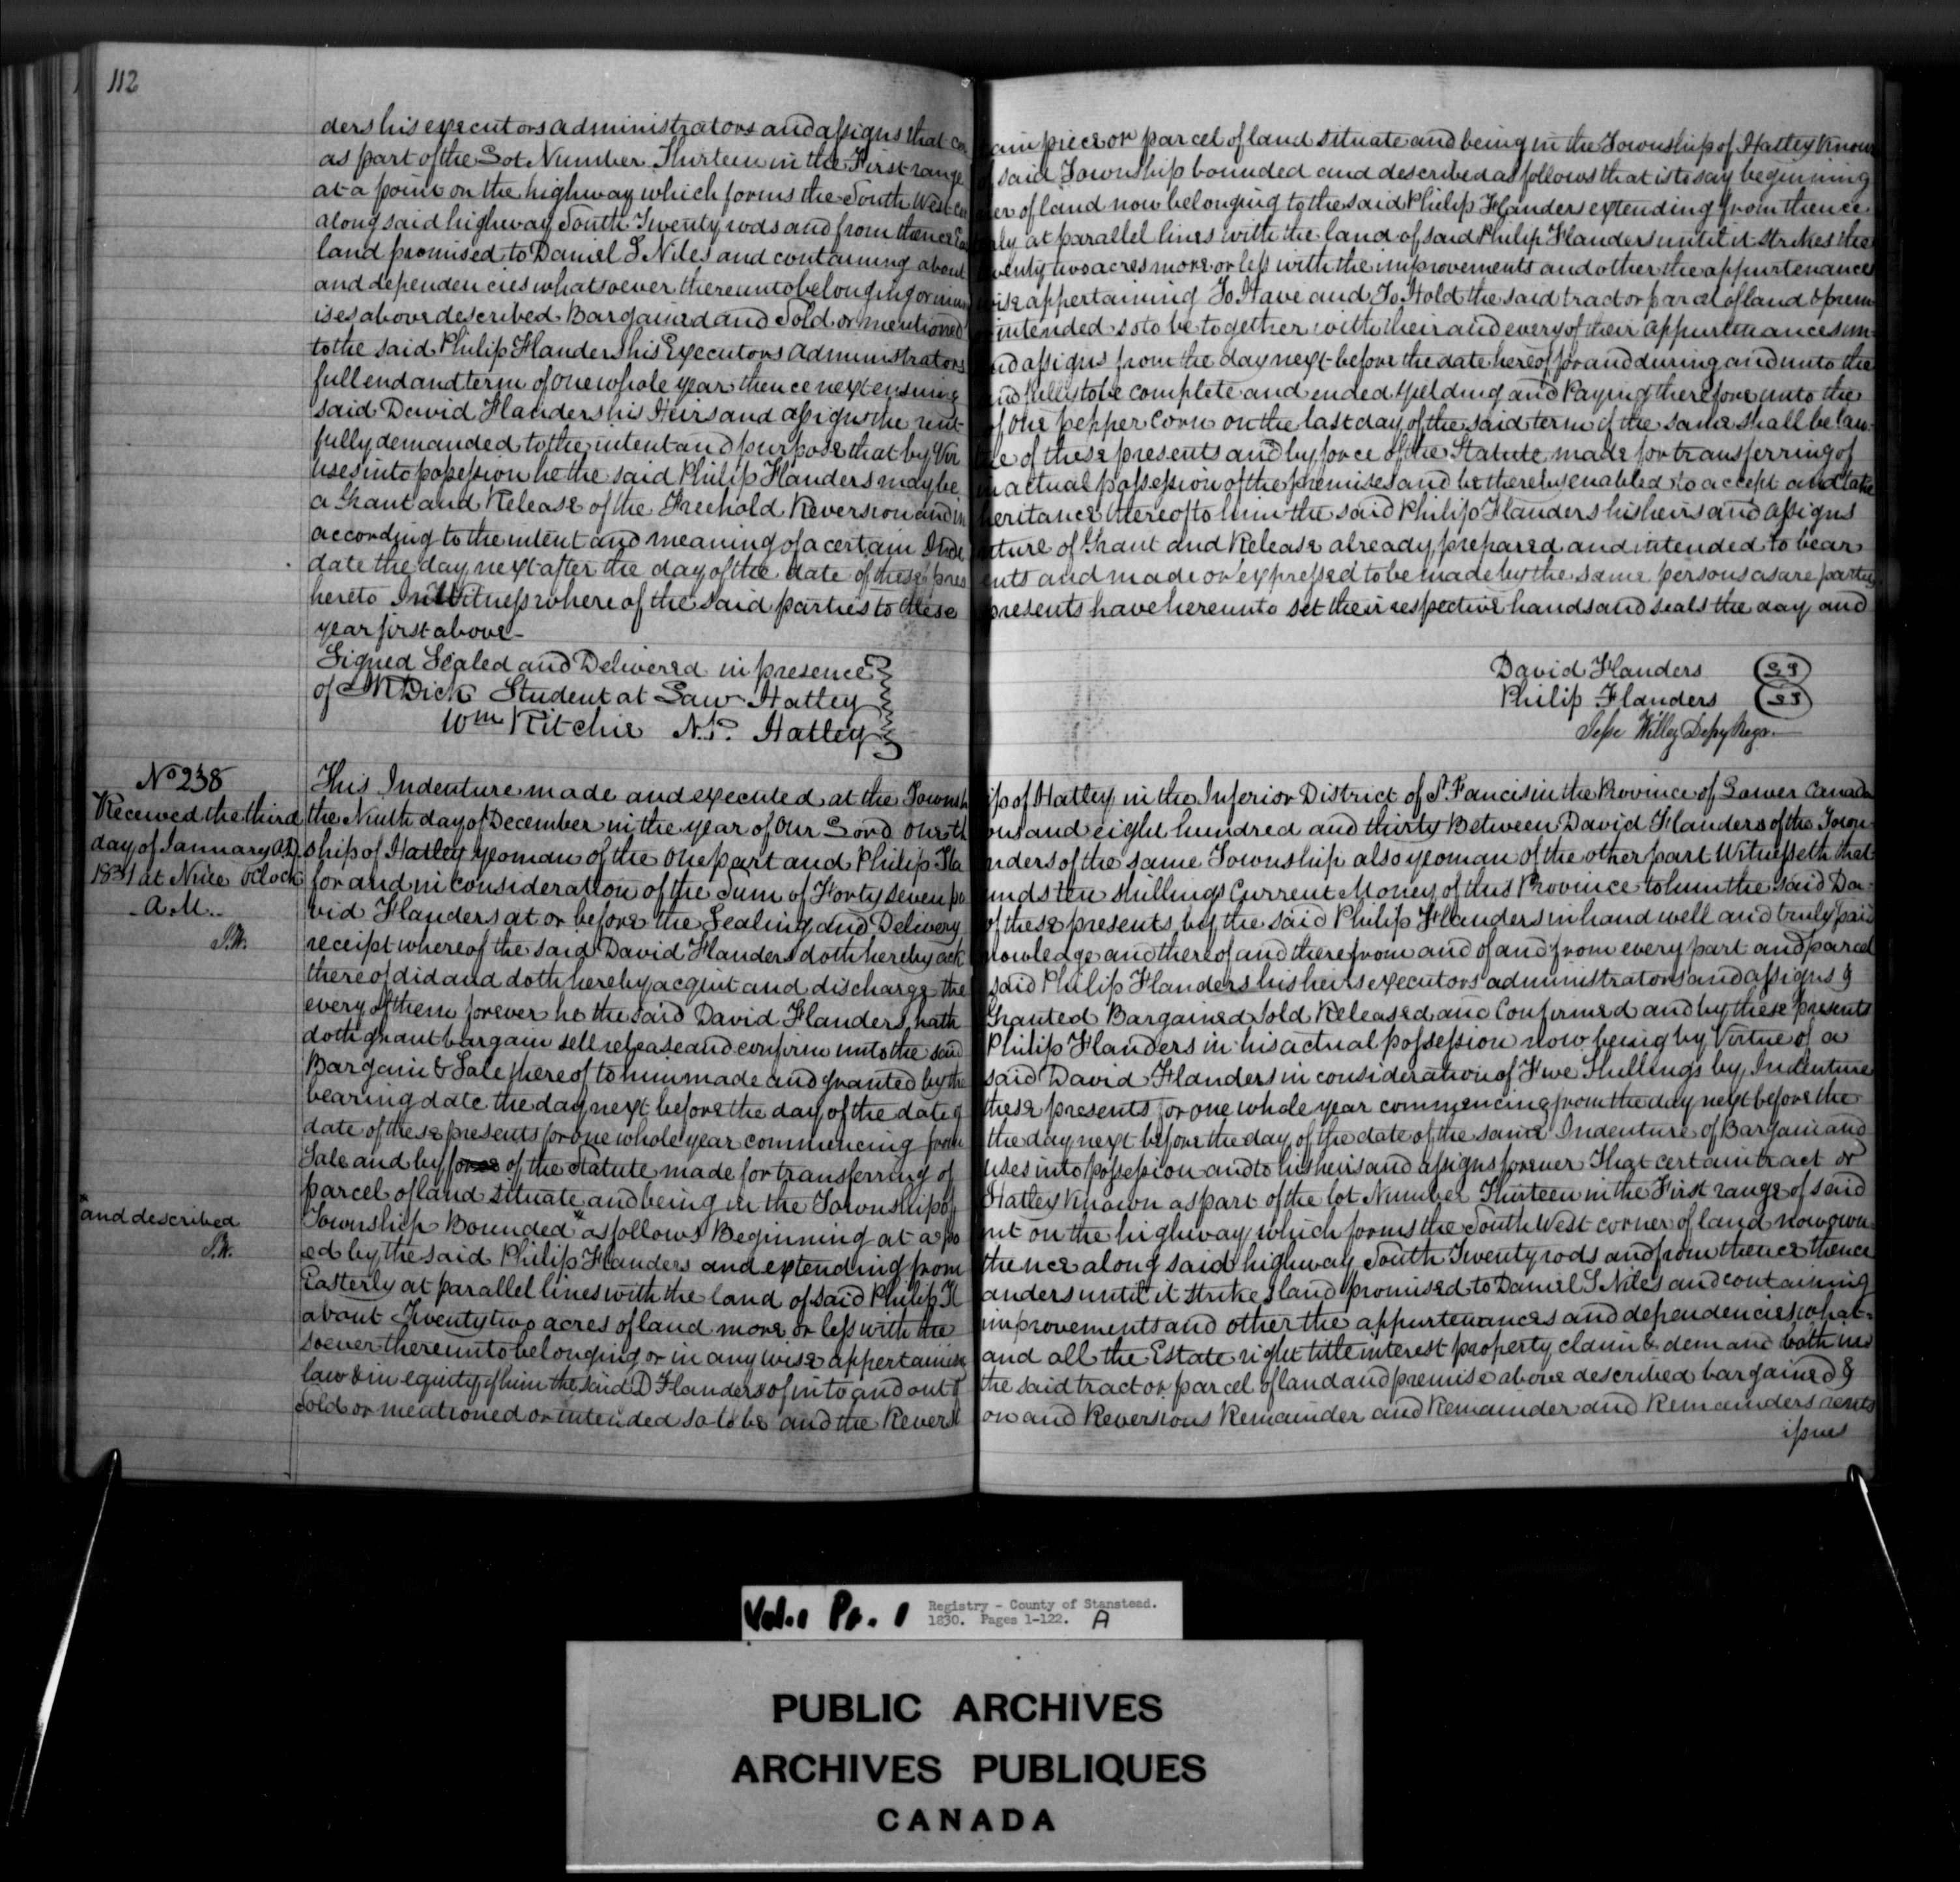 112
ders his executors administrators and assigns that cer ain piece or parcel of land situate and being in the Township of Hatley Known
as part of the Lot Number Thirteen in the First range of said Township bounded and described as follows that is to say beginning
at a point on the highway which forms the South West cor ner of land now belonging to the said Philip Flanders extending from thence
along said highway South Twenty rods and from thence Eas erly at parallel lines with the land of said Philip Flanders until it strikes the
land promised to Daniel S Niles and containing about wenty two acres more or less with the improvements and other the appurtenances
and dependencies whatsoever thereunto belonging or in any wise appertaining To Have and To Hold the said tract or parcel of land & prem
ises above described Bargained and Sold or mentioned or intended so to be together with their and every of their appurtenances un=
to the said Philip Flanders his Executors Administrators and assigns from the day next before the date hereof for and during and unto the
full end and term of one whole year thence next ensuing and fully to be complete and ended Yielding and Paying therefore unto the
said David Flanders his Heirs and assigns the rent of one pepper Corn on the last day of the said term if the same shall be law-
fully demanded to the intent and purpose that by Vir tue of these presents and by force of the Statute made for transferring of
uses into possession he the said Philip Flanders may be in actual possession of the premises and be thereby enabled to accept and take
a Grant and Release of the Freehold Reversion and in heritance thereof to him the said Philip Flanders his heirs and assigns
according to the intent and meaning of a certain Inde nture of Grant and Release already prepared and intended to bear
date the day next after the day of the date of these pres ents and made or expressed to be made by the same persons as are parties
hereto In Witness whereof the said parties to these presents have hereunto set their respective hands and seals the day and
year first above-
Signed Sealed and Delivered in presence David Flanders LS
of M Dick Student at Law Hatley Philip Flanders LS
Wm Ritchie N.P. Hatley Jesse Willey Depy Regr.
No 238
Received the third
day of January A.D.
1831 at Nine oClock
A.M.
J.W.
This Indenture made and executed at the Townsh ip of Hatley in the Inferior District of St Fancis in the Province of Lower Canada
the Ninth day of December in the year of Our Lord One th ousand eight hundred and thirty Between David Flanders of the Town-
ship of Hatley yeoman of the one part and Philip Fla nders of the same Township also yeoman of the other part Witnesseth that
for and in consideration of the Sum of Forty Seven po unds ten shillings Current Money of this Province to him the said Da-
vid Flanders at or before the Sealing and Delivery of these presents by the said Philip Flanders in hand well and truly paid
receipt whereof the said David Flanders doth hereby ack nowledge and thereof and therefrom and of and from every part and parcel
thereof did and doth hereby acquit and discharge the said Philip Flanders his heirs executors administrators and assigns &
every of them forever he the said David Flanders hath Granted Bargained Sold Released and Confirmed and by these presents
doth grant bargain sell release and confirm unto the said Philip Flanders in his actual possession now being by Virtue of a
Bargain & Sale thereof to him made and granted by the said David Flanders in consideration of Five Shillings by Indenture
bearing date the day next before the day of the date of these presents for one whole year commencing from the day next before the
date of these presents for one whole year commencing from the day next before the day of the date of the same Indenture of Bargain and
Sale and by force of the Statute made for transferring of uses into possession and to his heirs and assigns forever That certain tract or
parcel of land situate and being in the Township of Hatley Known as part of the lot Number Thirteen in the First range of said
* and described
J.W.
Township Bounded * as follows Beginning at a po int on the highway which forms the South West corner of land now own-
ed by the said Philip Flanders and extending from thence along said highway South Twenty rods and from thence thence
Easterly at parallel lines with the land of said Philip Fl anders until it strikes land promised to Daniel S Niles and containing
about Twenty two acres of land more or less with the improvements and other the appurtenances and dependencies what=
soever thereunto belonging or in any wise appertaining and all the Estate right title interest property claim & demand both in
law & in equity of him the said D Flanders of in to and out of the said tract or parcel of land and premise above described bargained &
Sold or mentioned or intended so to be and the Reversi on and Reversions Remainder and Remainder and Remainders rents
issues
Vol. 1 Pt. 1 Registry - County of Stanstead.
1830. Pages 1-122. A
PUBLIC ARCHIVES
ARCHIVES PUBLIQUES
CANADA